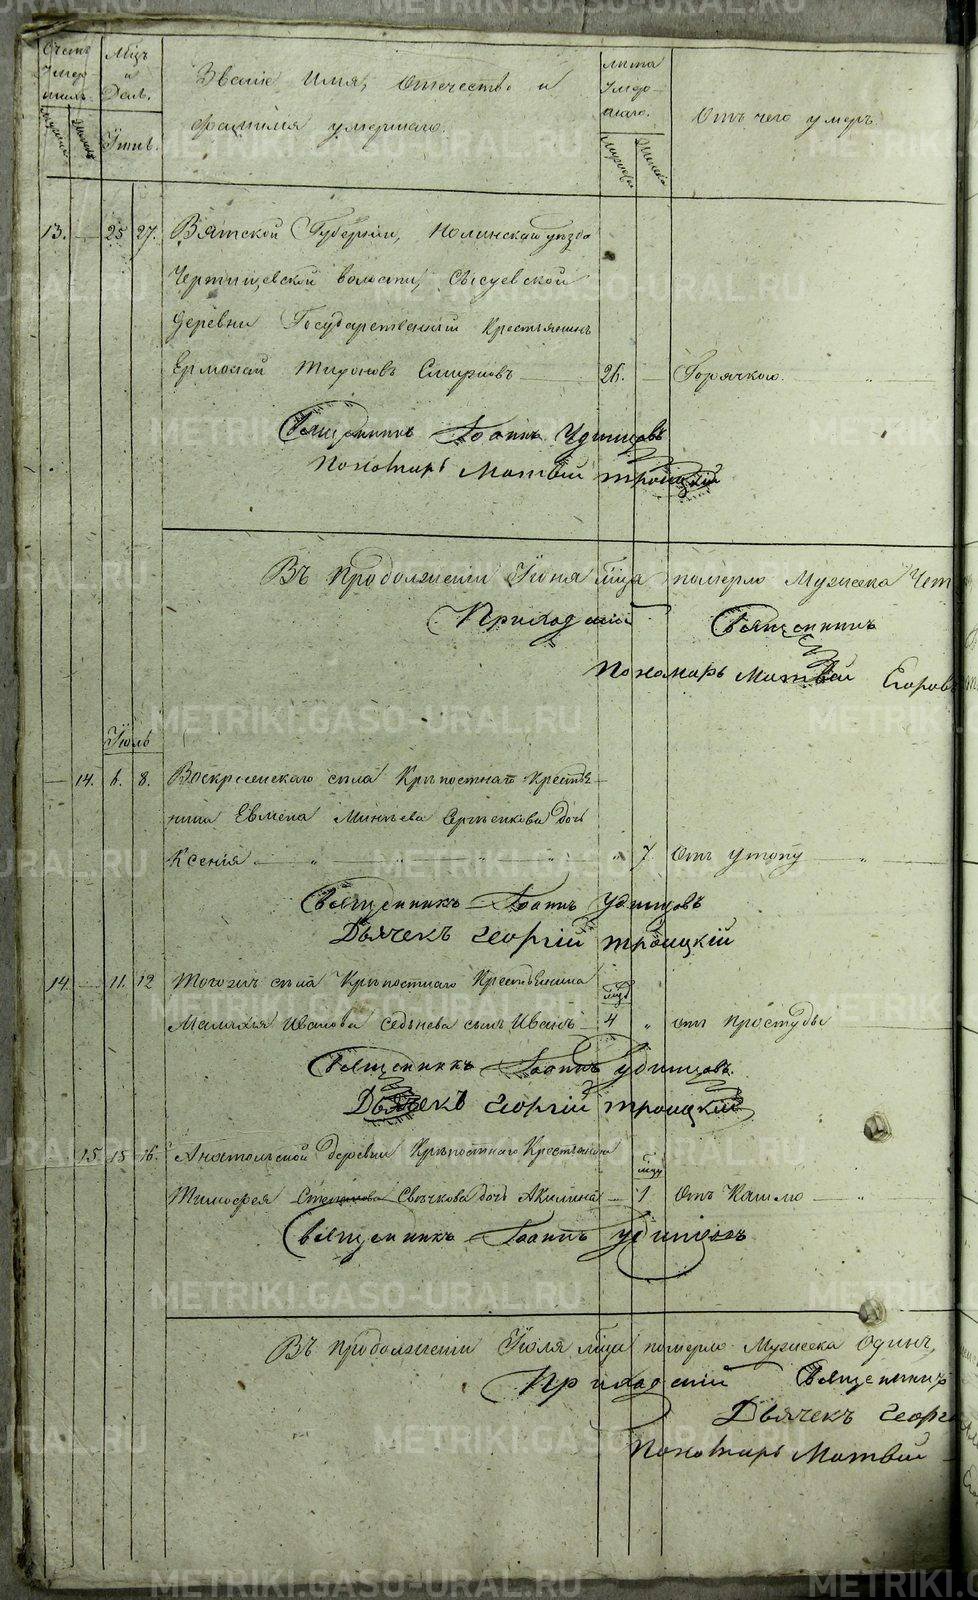 Счетъ умер шихъ.
Мцъ и День.
Званiе Имя, Отечество и
фамилiя умершаго.
лета умер шаго.
Отъ чего умеръ.
13. — 25 27. Вятской Губернiи, Нолинскаго уѣзда
волости, Сысуевской
деревни Государственный Крестьянинъ
Ермолай — 26. — Горячкою.
Священникъ Iоаннъ Удинцовъ
Пономарь Матвѣй Троицкiй
Въ продолженiи Iюня мца померло Мужеска Чет
Приходскiй Священникъ
Пономарь Матвѣй Егоровъ
Iюль
— 14. 6. 8. Воскресенскаго села Крѣпостнаго Крестья-
нина Евмена Минѣева дочь
Ксенiя — 7 Отъ утопу
Священникъ Iоаннъ Удинцовъ
Дьячекъ Георгiй Троицкiй
14. — 11. 12 Тогожъ села Крѣпостнаго Крестьянина
мцъ
Иванова сынъ Иванъ — 4 „ отъ простуды
Священникъ Iоаннъ Удинцовъ.
Дьячекъ Георгiй Троицкiй
— 15. 15 16. Анатольской деревни Крѣпостнаго Крестьянина
мцу
Тимофея Свѣчкова дочь Акилина — 1 Отъ Кашлю
Священникъ Iоаннъ Удинцовъ
Въ продолженiи Iюля мца померло Мужеска Одинъ,
Приходскiй Священникъ
Дьячекъ Георгi
Пономарь Матвѣй
METRIKI.GASO-URAL.RU